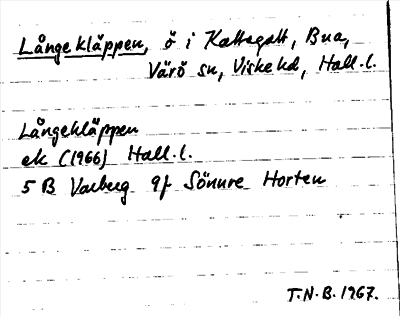 Långe kläppen, ö i Kattegatt, Bua,
Värö sn, Viske hd, Hall. l.
Långekläppen
ek (1966) Hall. l.
5 B Varberg 9f Sönnre Horten
T.N.B. 1967.